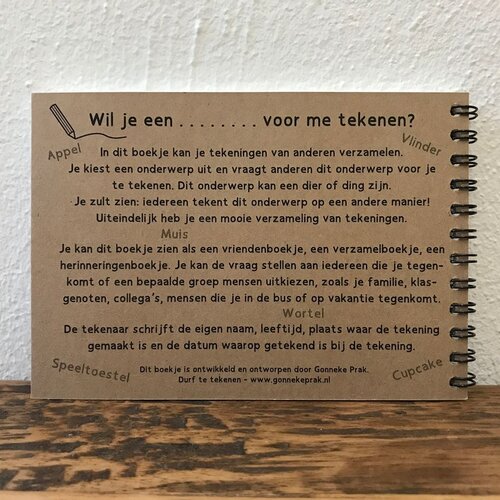 Wil je een . . . . . . . . voor me tekenen?
Appel
Vlinder
In dit boekje kan je tekeningen van anderen verzamelen.
Je kiest een onderwerp uit en vraagt anderen dit onderwerp voor je
te tekenen. Dit onderwerp kan een dier of ding zijn.
Je zult zien: iedereen tekent dit onderwerp op een andere manier!
Uiteindelijk heb je een mooie verzameling van tekeningen.
Muis
Je kan dit boekje zien als een vriendenboekje, een verzamelboekje, een
herinneringenboekje. Je kan de vraag stellen aan iedereen die je tegen-
komt of een bepaalde groep mensen uitkiezen, zoals je familie, klas-
genoten, collega's, mensen die je in de bus of op vakantie tegenkomt.
Wortel
De tekenaar schrijft de eigen naam, leeftijd, plaats waar de tekening
gemaakt is en de datum waarop getekend is bij de tekening.
Speeltoestel
Cupcake
Dit boekje is ontwikkeld en ontworpen door Gonneke Prak.
Durf te tekenen - www.gonnekeprak.nl